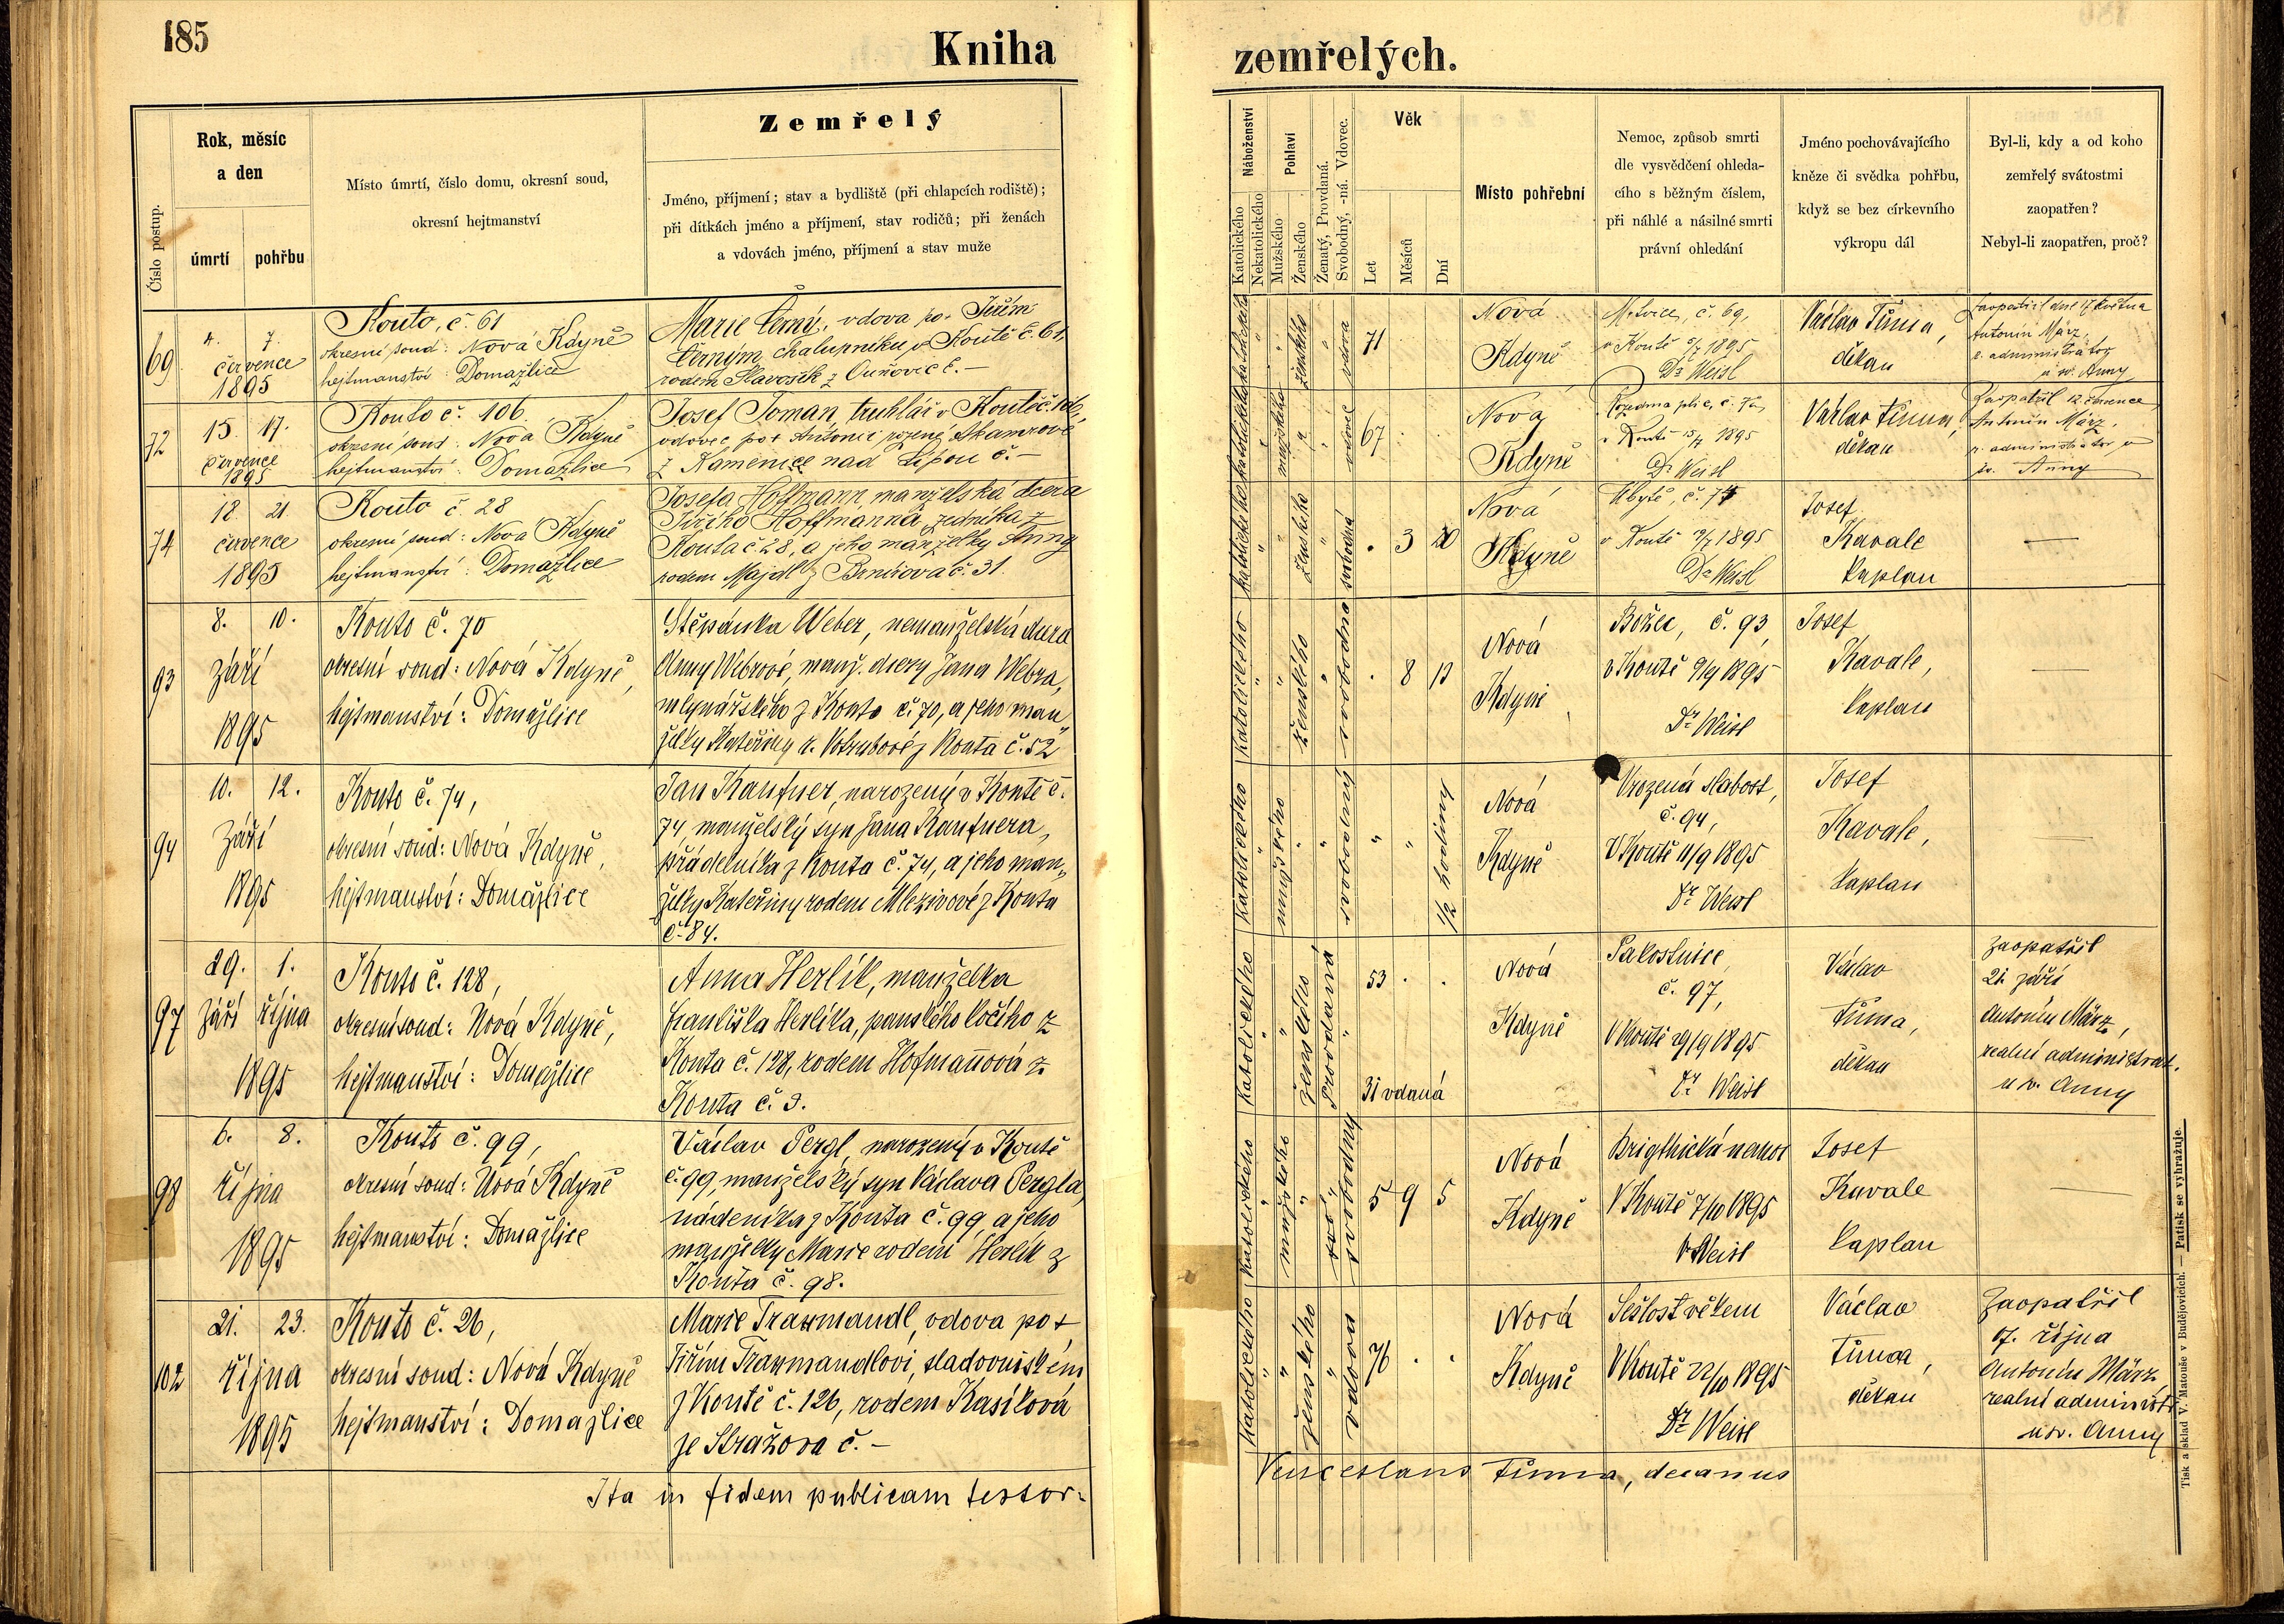 185
Kniha
zemřelých.
Číslo postup.
Rok, měsíc
a den
úmrtí
pohřbu
Místo úmrtí, číslo domu, okresní soud,
okresní hejtmanství
Zemřelý
Jméno, příjmení; stav a bydliště (při chlapcích rodiště);
při dítkách jméno a příjmení, stav rodičů; při ženách
a vdovách jméno, příjmení a stav muže
Náboženství
Katolického
Nekatolického
Pohlaví
Mužského
Ženského
Ženatý, Provdaná.
Svobodný, -ná. Vdovec.
Věk
Let
Měsíců
Dní
Místo pohřební
Nemoc, způsob smrti
dle vysvědčení ohleda-
cího s běžným číslem,
při náhlé a násilné smrti
právní ohledání
Jméno pochovávajícího
kněze či svědka pohřbu,
když se bez církevního
výkropu dál
Byl-li, kdy a od koho
zemřelý svátostmi
zaopatřen?
Nebyl-li zaopatřen, proč?
69
4. 7.
července
1895
Kouto, č. 61
okresní soud: Nová Kdyně
hejtmanství: Domažlice
Marie Černá, vdova po + Jiřím
Černým, chalupníku v Koutě č. 61,
rodem Slavošík z č. –
ženského
vdova
71
Nová
Kdyně
č. 69,
v Koutě 5/7 1895
Dr Weisl
Václav Tůma,
děkan
Zaopatřil dne 17 května
Antonín März,
r. administrátor
u sv. Anny
72
15. 17.
července
1895
Kouto č. 106
okresní soud: Nová Kdyně
hejtmanství: Domažlice
Josef Toman, truhlář v Koutě č. 106,
vdovec po + Antonii rozené
z Kamenice nad Lipou č. –
mužského
vdovec
67
Nová
Kdyně
Rozedma plic, č. 72,
v Koutě 15/7 1895
Dr Weisl
Václav Tůma,
děkan
Zaopatřil 12. července
Antonín März,
r. administrátor u
sv. Anny
74
18. 21.
července
1895
Kouto č. 28
okresní soud: Nova Kdyně
hejtmanství: Domažlice
Josefa Hoffmann, manželská dcera
Jiřího Hoffmanna, zedníka z
Kouta č 28, a jeho manželky Anny
rodem Majdl z Brnířova č. 31
ženského
svobodná
3 20
Nová
Kdyně
Úbytě, č. 74
v Koutě 19/7 1895
Dr Weisl
Josef
Kavale
kaplan
93
8. 10.
září
1895
Kouto č. 70
okresní soud: Nová Kdyně,
hejtmanství: Domažlice
Štěpánka Weber, nemanželská dcera
Anny Webrové, manž. dcery Jana Webra,
mlynářského z Kouta č. 70, a jeho man
želky Kateřiny r. Votrubové z Kouta č. 52
Katolického
ženského
svobodná
8 13
Nová
Kdyně
Božec, č. 93,
v Koutě 9/9 1895
Dr Weisl
Josef
Kavale,
kaplan
94
10. 12.
září
1895
Kouto č. 74,
okresní soud: Nová Kdyně,
hejtmanství: Domažlice
Jan Kaufner, narozený v Koutě č.
74, manželský syn Jana Kaufnera,
přádelníka z Kouta č. 74, a jeho man„
želky Kateřiny rodem Mlezivové z Kouta
č. 84.
Katolického
mužského
svobodný
1/2 hodiny
Nová
Kdyně
Vrozená slabost,
č. 94,
V Koutě 11/9 1895
Dr Weisl
Josef
Kavale,
kaplan
97
29. 1.
září října
1895
Kouto č. 128,
okresní soud: Nová Kdyně,
hejtmanství: Domažlice
Anna Herlík, manželka
Františka Herlíka, panského kočího z
Kouta č. 128, rodem Hofmanová z
Kouta č. 9.
Katolického
ženského
provdaná
53
31 vdaná
Nová
Kdyně
Pakostnice,
č. 97,
V Koutě 29/9 1895
Dr Weisl
Václav
Tůma,
děkan
Zaopatřil
21. září
Antonín März,
realní administrat.
u sv. Anny
98
6. 8.
října
1895
Kouto č. 99,
okresní soud: Nová Kdyně
hejtmanství: Domažlice
Václav Pergl, narozený v Koutě
č. 99, manželský syn Václava Pergla,
nádeníka z Kouta č. 99, a jeho
manželky Marie rodem Herlík z
Kouta č. 98.
Katolického
mužského
svobodný
5 9 5
Nová
Kdyně
Brigthická nemoc
V Koutě 7/10 1895
Dr Weisl
Josef
Kavale
kaplan
102
21. 23.
října
1895
Kouto č. 26,
okresní soud: Nová Kdyně
hejtmanství: Domažlice
Marie Traxmandl, vdova po +
Jiřím Traxmandlovi, sladovnickém
z Koutě č. 126, rodem Kasíková
ze Strážova č. –
Katolického
ženského
vdova
76
Nová
Kdyně
Sešlost věkem
V Koutě 22/10 1895
Dr Weisl
Václav
Tůma,
děkan
Zaopatřil
17. října
Antonín März
realní administr.
u sv. Anny
Ita in fidem publicam testor:
Venceslaus Tůma, decanus
Tisk a sklad V. Matouše v Budějovicích. — Patisk se vyhražuje.